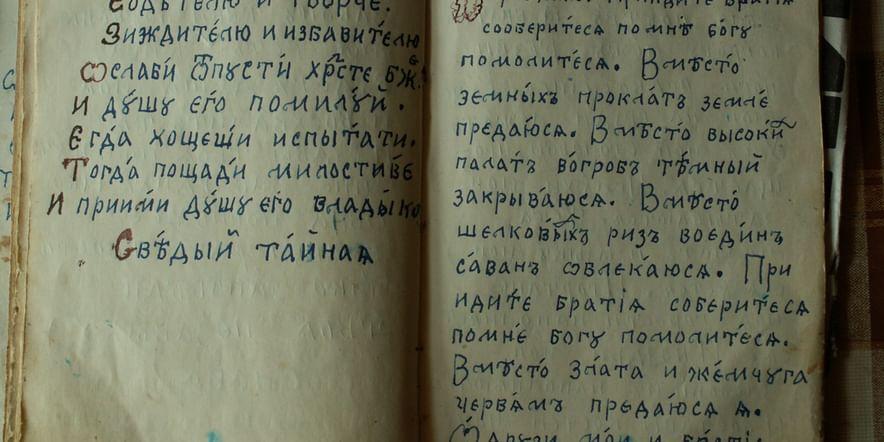 Содѣтелю и творче.
Зиждителю и избавителю
ѡслаби́ ѿпусти́ хр҇сте бж҃е
и ду́шу єго́ поми́луй.
Єгда́ хощеши́ испыта́ти.
Тогда́ пощади́ милости́вє
И приими́ ду́шу єго́ влады́ко
Свѣ́дый та́йнаѧ
прииди́те братїѧ
сооберите́сѧ помнѣ́ бо́гу
помолите́сѧ. Вмѣсто́
земны́хъ прокла́тъ землє́
предаю́сѧ. Вмѣсто́ высоки́й
пала́тъ во́гробъ тє́мный
закрыва́юсѧ. Вмѣсто́
шелко́вы́хъ ризъ воєди́нъ
са́ванъ ѡвлека́юсѧ. При
иди́те братїѧ собери́тєсѧ
помнє́ богу помоли́тєсѧ.
Вмѣсто́ зла́та и же́мчуга
червѧ́мъ предаю́сѧ ѧ.